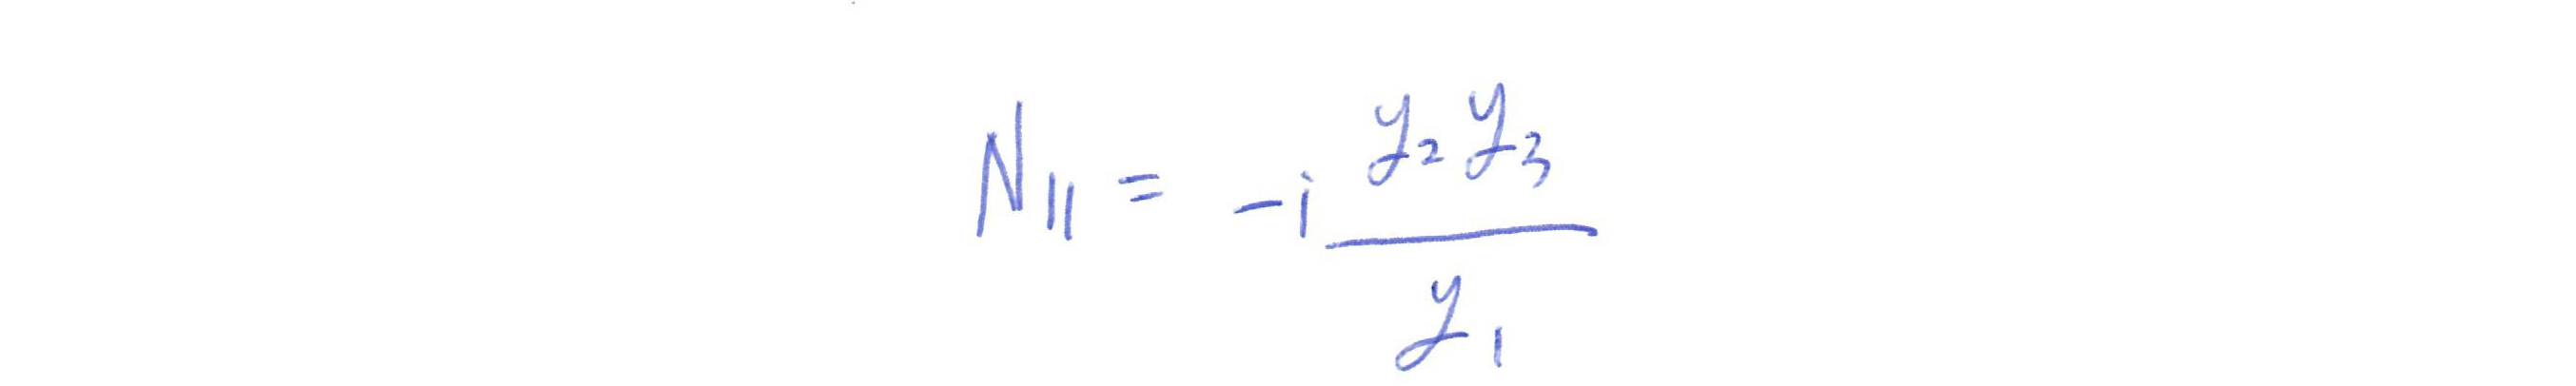 N_{11} = -i \frac{y_2 y_3}{y_1}